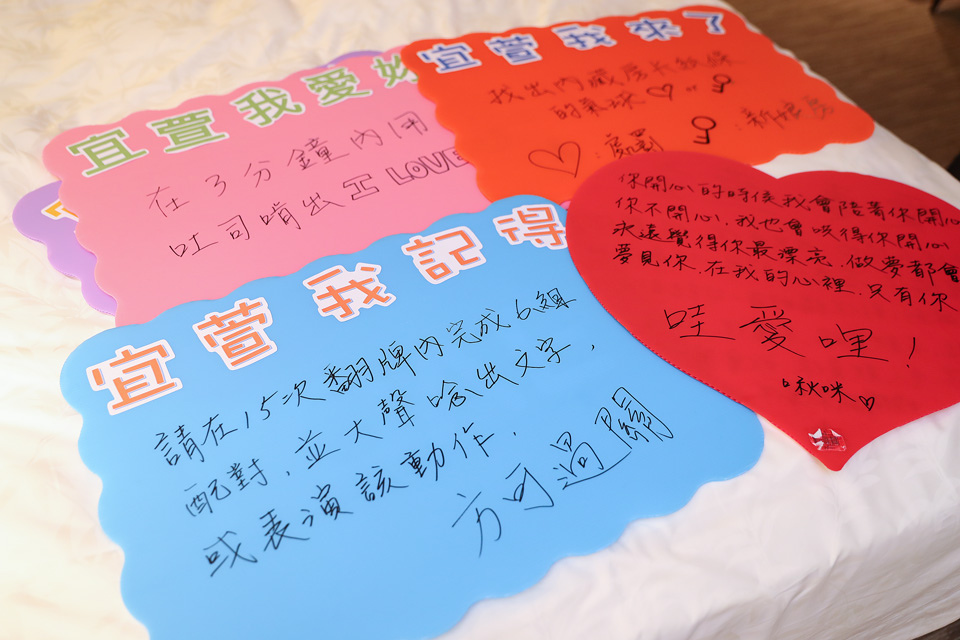 宜萱我愛妳
在3分鐘內用
吐司啃出 I LOVE
宜萱我來了
找出內藏房卡鑰匙
的氣球♡ or
♡:處罰 :新娘房
宜萱我記得
請在15次翻牌內完成6組
配對,並大聲唸出文字,
或表演該動作,
方可過關
你開心的時侯我會陪著你開心
你不開心,我也會哄得你開心
永遠覺得你最漂亮.做夢都會
夢見你.在我的心裡.只有你
哇愛哩!
啾咪♡